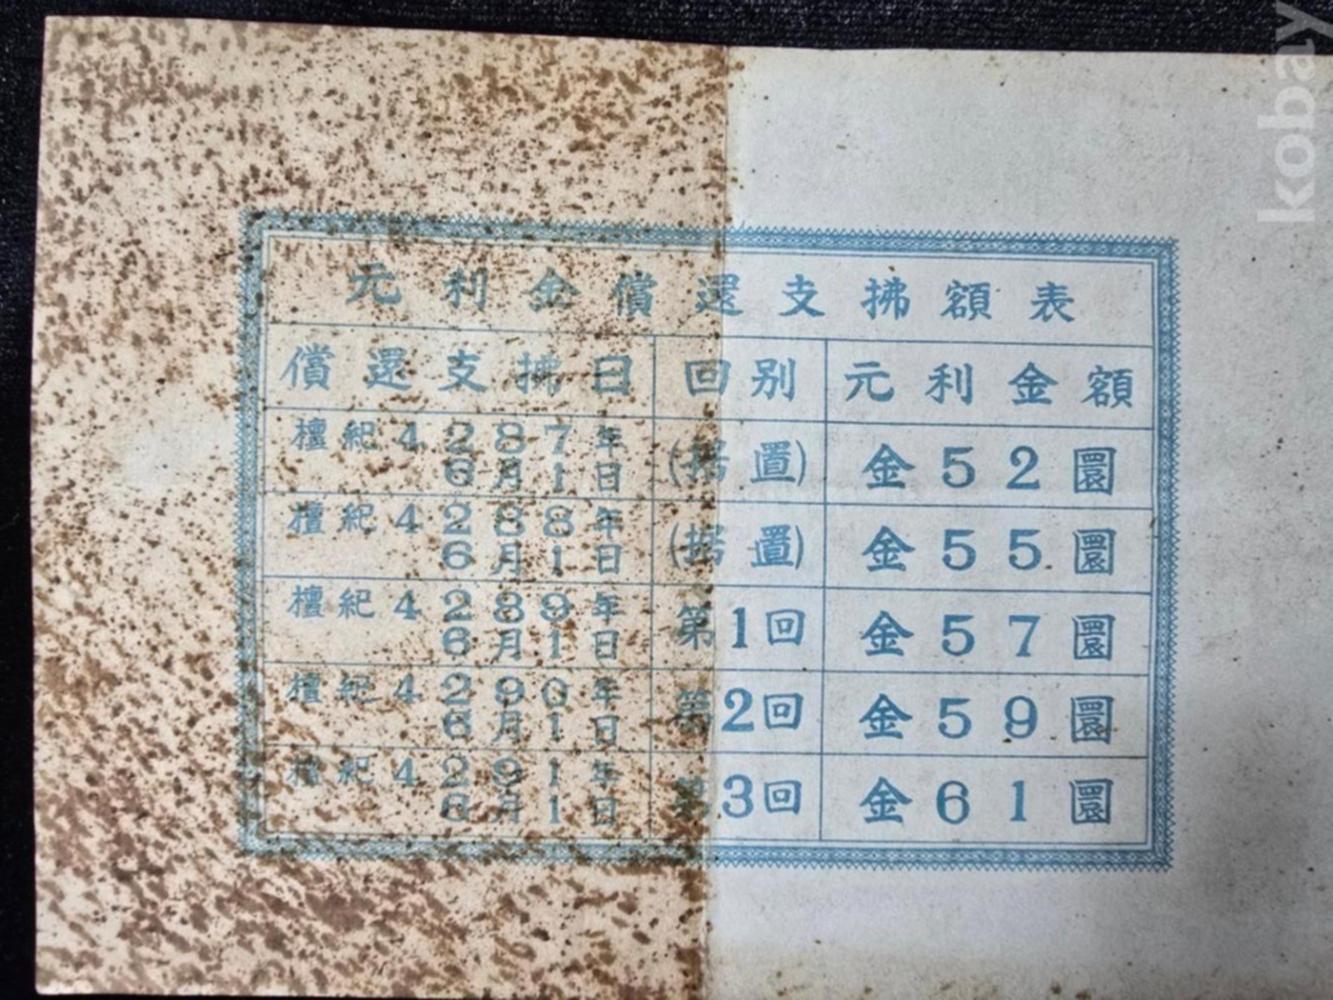 元利金償還支拂額表
償還支拂日 回別 元利金額
檀紀4287年6月1日 (据置) 金52圜
檀紀4288年6月1日 (据置) 金55圜
檀紀4289年6月1日 第1回 金57圜
檀紀4290年6月1日 第2回 金59圜
檀紀4291年6月1日 第3回 金61圜
kobay